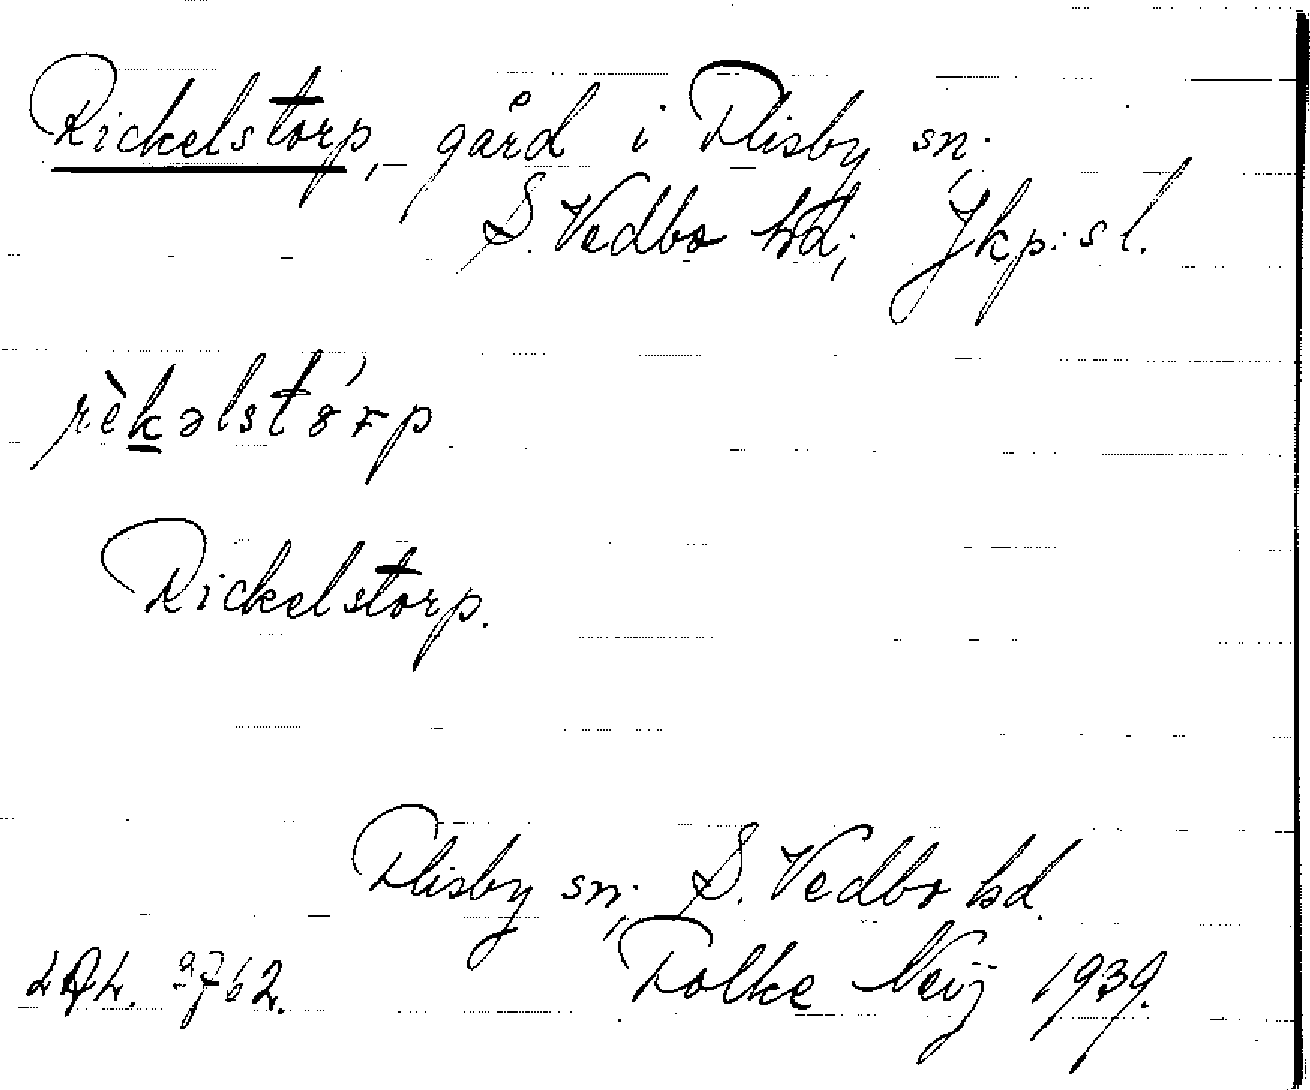 Rickelstorp, gård i Flisby sn.
S. Vedbo hd; Jkp:s l.
rèkəlstórp
Rickelstorp.
Flisby sn; S. Vedbo hd.
Folke Neij 1939.
2762.